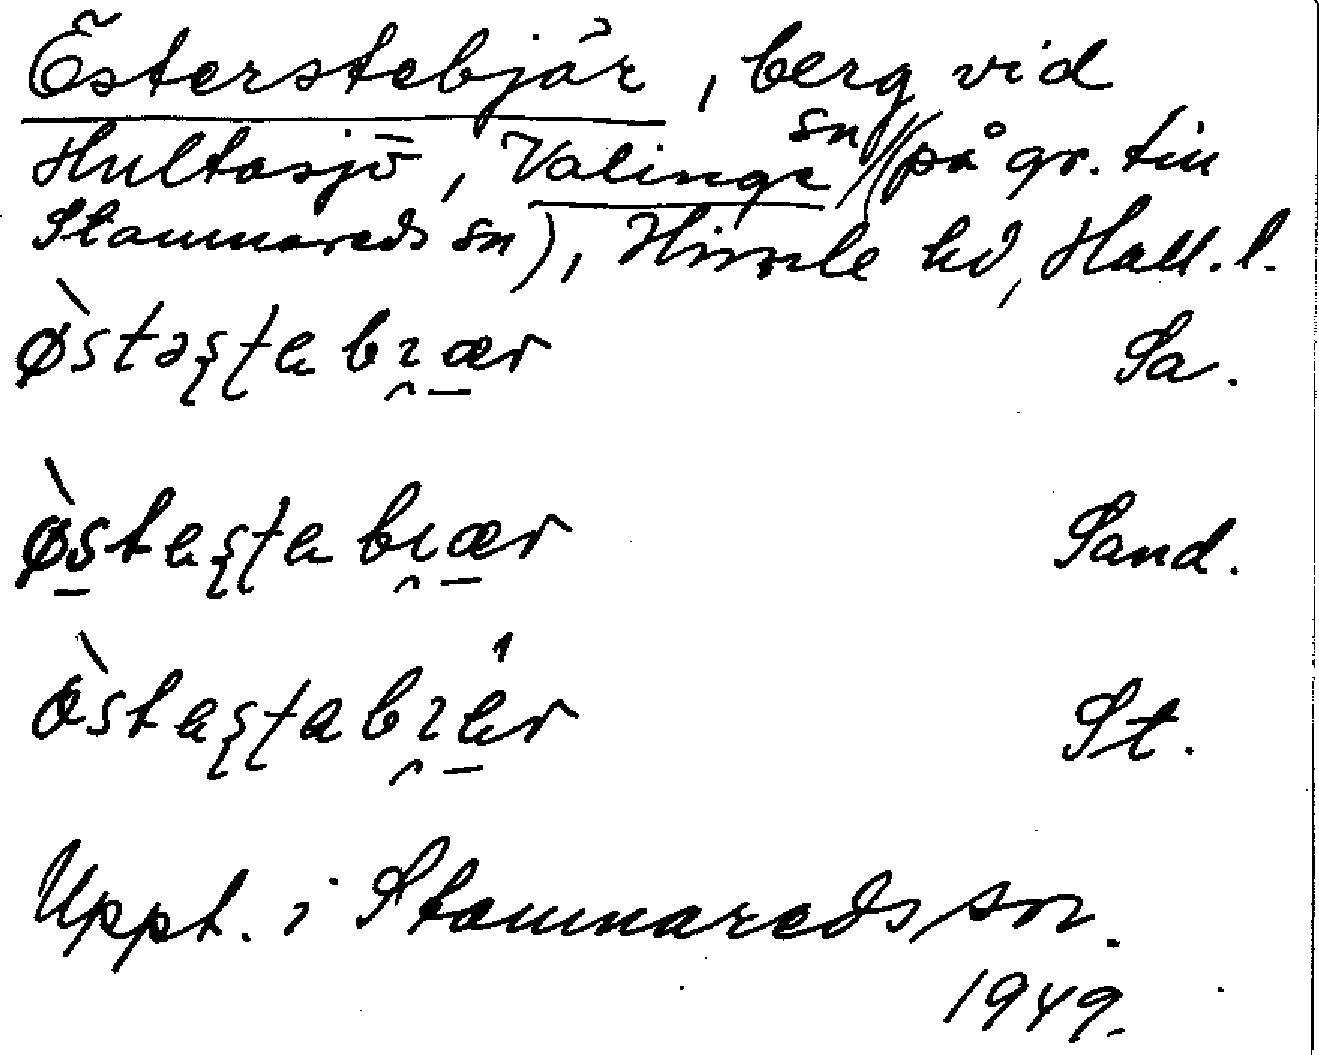 Österstebjär, berg vid
Hultasjö, Valinge sn (på gr. till
Stamnareds sn), Himle hd, Hall. l.
Sa.
Sand.
St.
Uppt. i Stamnareds sn.
1949.